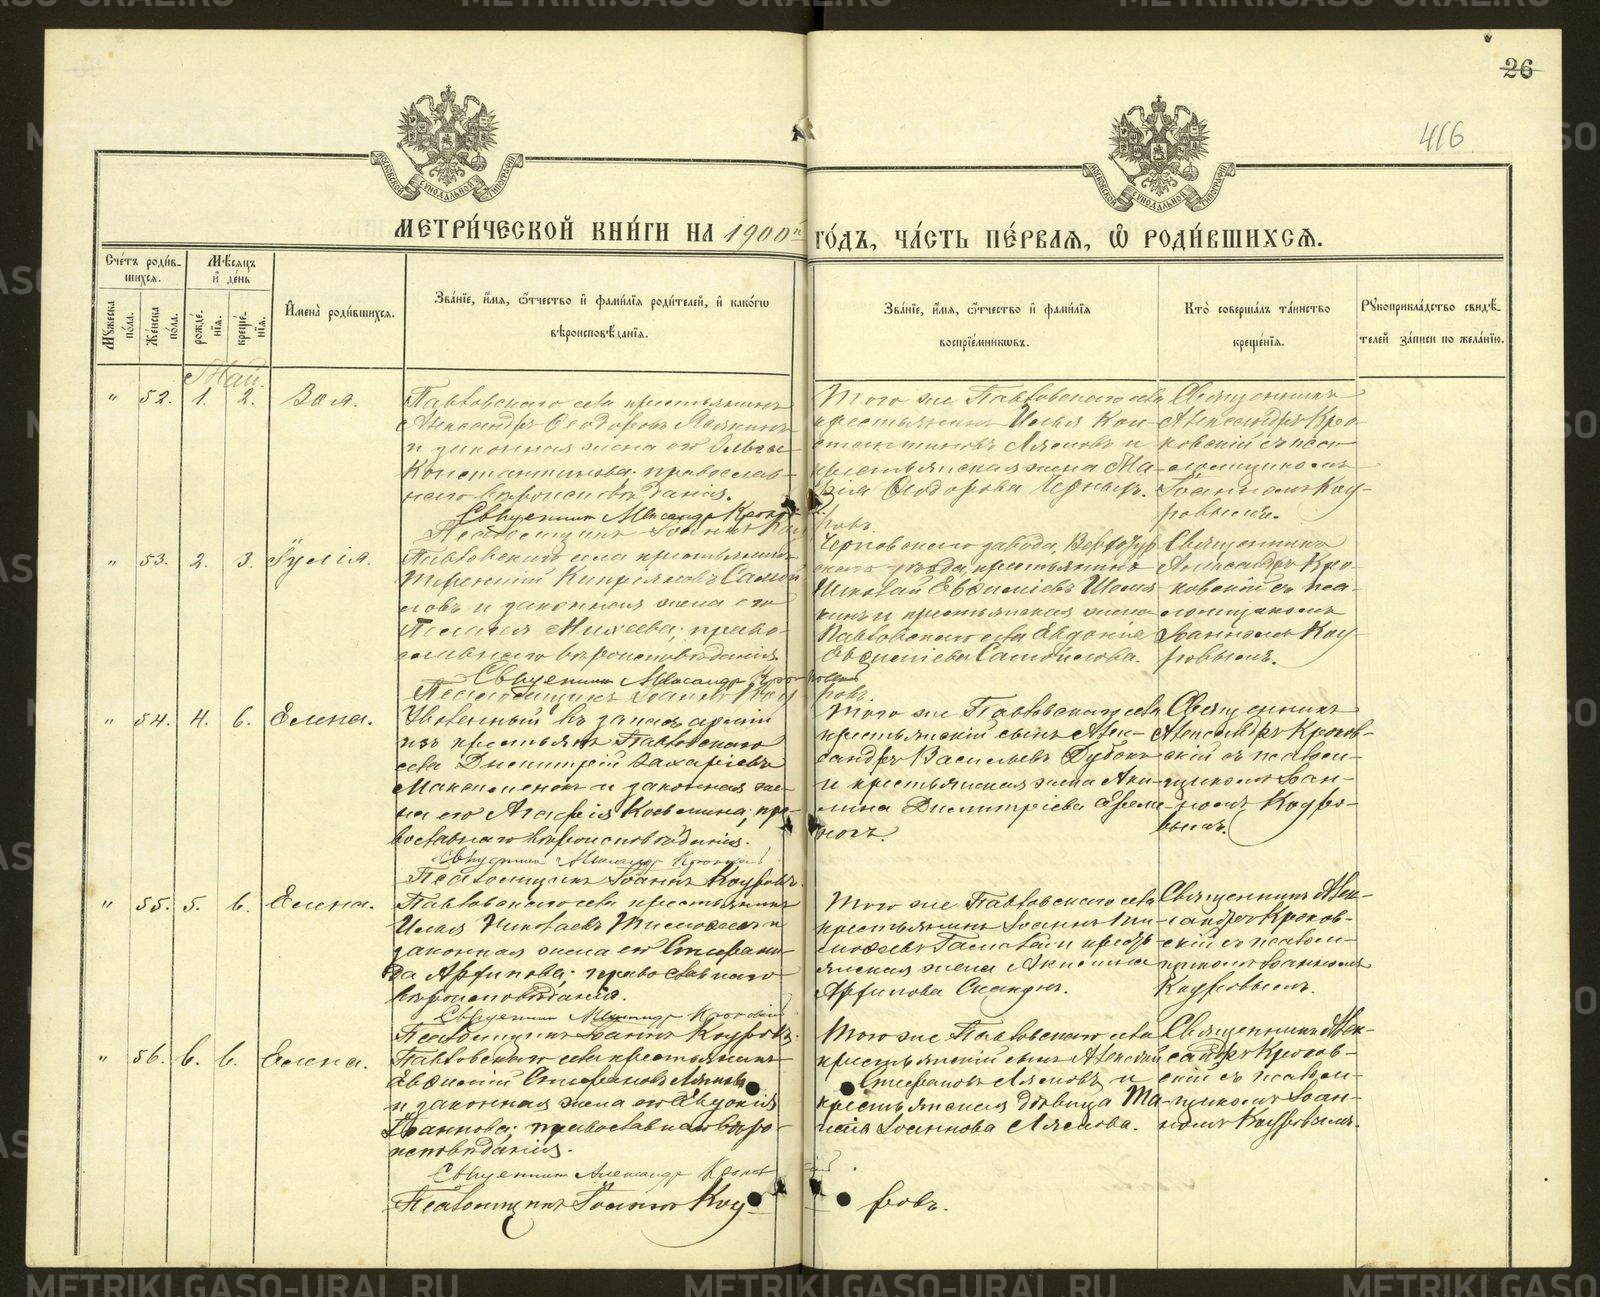 26
416
МОСКОВСКОЙ СѴНОДАЛЬНОЙ ТИПОГРАФІИ
МОСКОВСКОЙ СѴНОДАЛЬНОЙ ТИПОГРАФІИ
МЕТРИ́ЧЕСКОЙ КНИ́ГИ НА 1900й ГО́ДЪ, ЧА́СТЬ ПЕ́РВАЯ, Ѡ҆ РОДИ́ВШИХСЯ.
Сче́тъ роди́вшихся.
Мѣ́сяцъ и҆ де́нь
Мꙋ́жеска по́ла.
Же́нска по́ла.
рожде́нїя.
креще́нїя.
И҆мена̀ роди́вшихся.
Зва́нїе, и҆́мя, ѻ҆́тчество и҆ фами́лїя роди́телей, и҆ како́гѡ
вѣроисповѣ́данїя.
Зва́нїе, и҆́мя, ѻ҆́тчество и҆ фами́лїя
воспрїе́мникѡвъ.
Кто̀ соверша́лъ та́инство
креще́нїя.
Рꙋкоприкла́дство свидѣ́телей за́писи по жела́нїю.
Май.
" 52. 1. 2. Зоя.
Павловскаго села крестьянинъ
Александръ Ѳеодоровъ
и законная жена его Ольга
Константинова; православнаго вѣроисповѣданія.
Священник Александр Кроковский
Псаломщикъ Іоаннъ Кауровъ.
Того же Павловскаго села
крестьянинъ Илья Константиновъ Лямовъ и
крестьянская жена Марія Ѳеодорова
Священникъ
Александръ Кроковскій съ псаломщикомъ
Іоанномъ Кауровымъ.
" 53. 2. 3. Іулія.
Павловскаго села крестьянинъ
Терентій Кипріяновъ Самойловъ и законная жена его
Пелагея Михеева; православнаго вѣроисповѣданія.
Священник Александр Кроковский
Псаломщикъ Іоаннъ Кауровъ.
завода, Верхотурскаго уѣзда, крестьянинъ
Николай Евѳиміевъ
и крестьянская жена
Павловскаго села Евдокія
Евѳиміева Самойлова.
Священникъ
Александръ Кроковскій съ псаломщикомъ
Іоанномъ Кауровымъ.
" 54. 4. 6. Елена.
Уволенный въ запасъ арміи
изъ крестьянъ Павловскаго
села Димитрій Захаріевъ
и законная жена его Агафія Косьмина; православнаго вѣроисповѣданія.
Священник Александр Кроковский
Псаломщикъ Іоаннъ Кауровъ.
Того же Павловскаго села
крестьянскій сынъ Александръ Васильевъ
и крестьянская жена Акилина Димитріева
Священникъ
Александръ Кроковскій съ псаломщикомъ Іоанномъ Кауровымъ.
" 55. 5. 6. Елена.
Павловскаго села крестьянинъ
Илья Николаевъ Тимоѳеевъ и
законная жена его Стефанида Архипова; православнаго
вѣроисповѣданія.
Священник Александр Кроковский
Псаломщикъ Іоаннъ Кауровъ.
Того же Павловскаго села
крестьянинъ Іоаннъ Тимоѳеевъ и крестьянская жена Акилина
Архипова
Священникъ Александръ Кроковскій съ псаломщикомъ Іоанномъ
Кауровымъ.
" 56. 6. 6. Елена.
Павловскаго села крестьянинъ
Евѳимій Стефановъ Лямовъ
и законная жена его Евдокія
Іоаннова; православнаго вѣроисповѣданія.
Священник Александр Кроковский
Псаломщикъ Іоаннъ Кауровъ.
Того же Павловскаго села
крестьянскій сынъ Алексѣй
Стефановъ Лямовъ и
крестьянская дѣвица
Іоаннова Лямова.
Священникъ Александръ Кроковскій съ псаломщикомъ Іоанномъ Кауровымъ.
METRIKI.GASO-URAL.RU